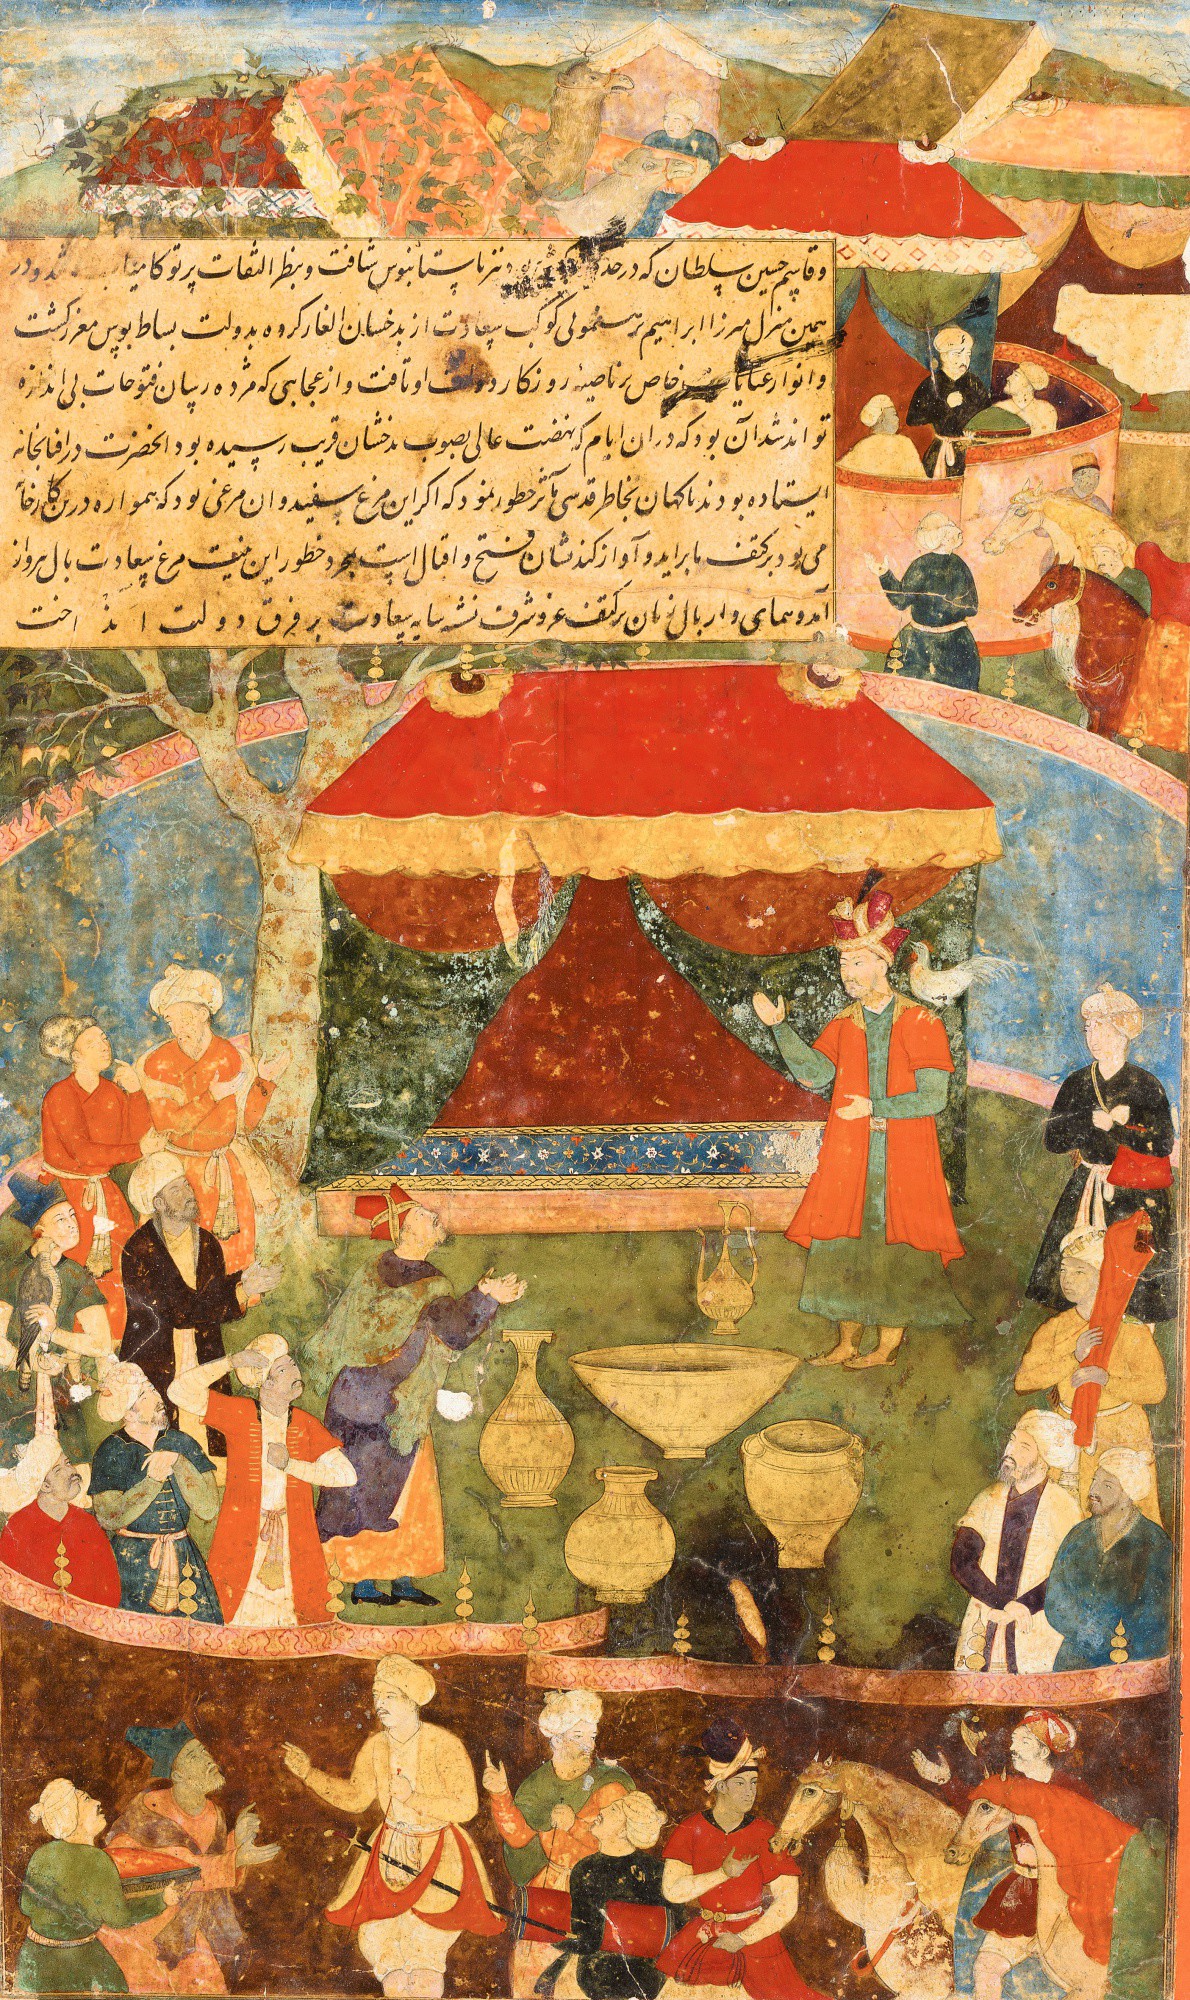 و قاسم حسین سلطان که در حدود بود نیز باستانبوس شتافت و بنظر التفات پرتو کامیاب شد و در
همین منزل میرزا ابراهیم برهنمونی کوکب سعادت از بدخشان ایلغار کرده بدولت بساط بوس معزز کشت
و انوار عنایات خاص بر ناصیهٔ روزکار دولت او تافت و از عجایبی که مژده رسان فتوحات بی اندازه
تواند شد آن بود که در آن ایام که نهضت عالی بصوب بدخشان قریب رسیده بود آنحضرت در آفتابخانه
ایستاده بودند ناکهان بخاطر قدسی مآثر خطور نمود که اکر این مرغ سفید و آن مرغی بود که همواره درین
می بود بر کتف ما براید و آواز کند نشان فتح و اقبال است بمجرد خطور این نیت مرغ سعادت بال پرواز
آمد و همای وار بال زنان بر کتف عز و شرف نشسته سایه سعادت بر فرق دولت انداخت